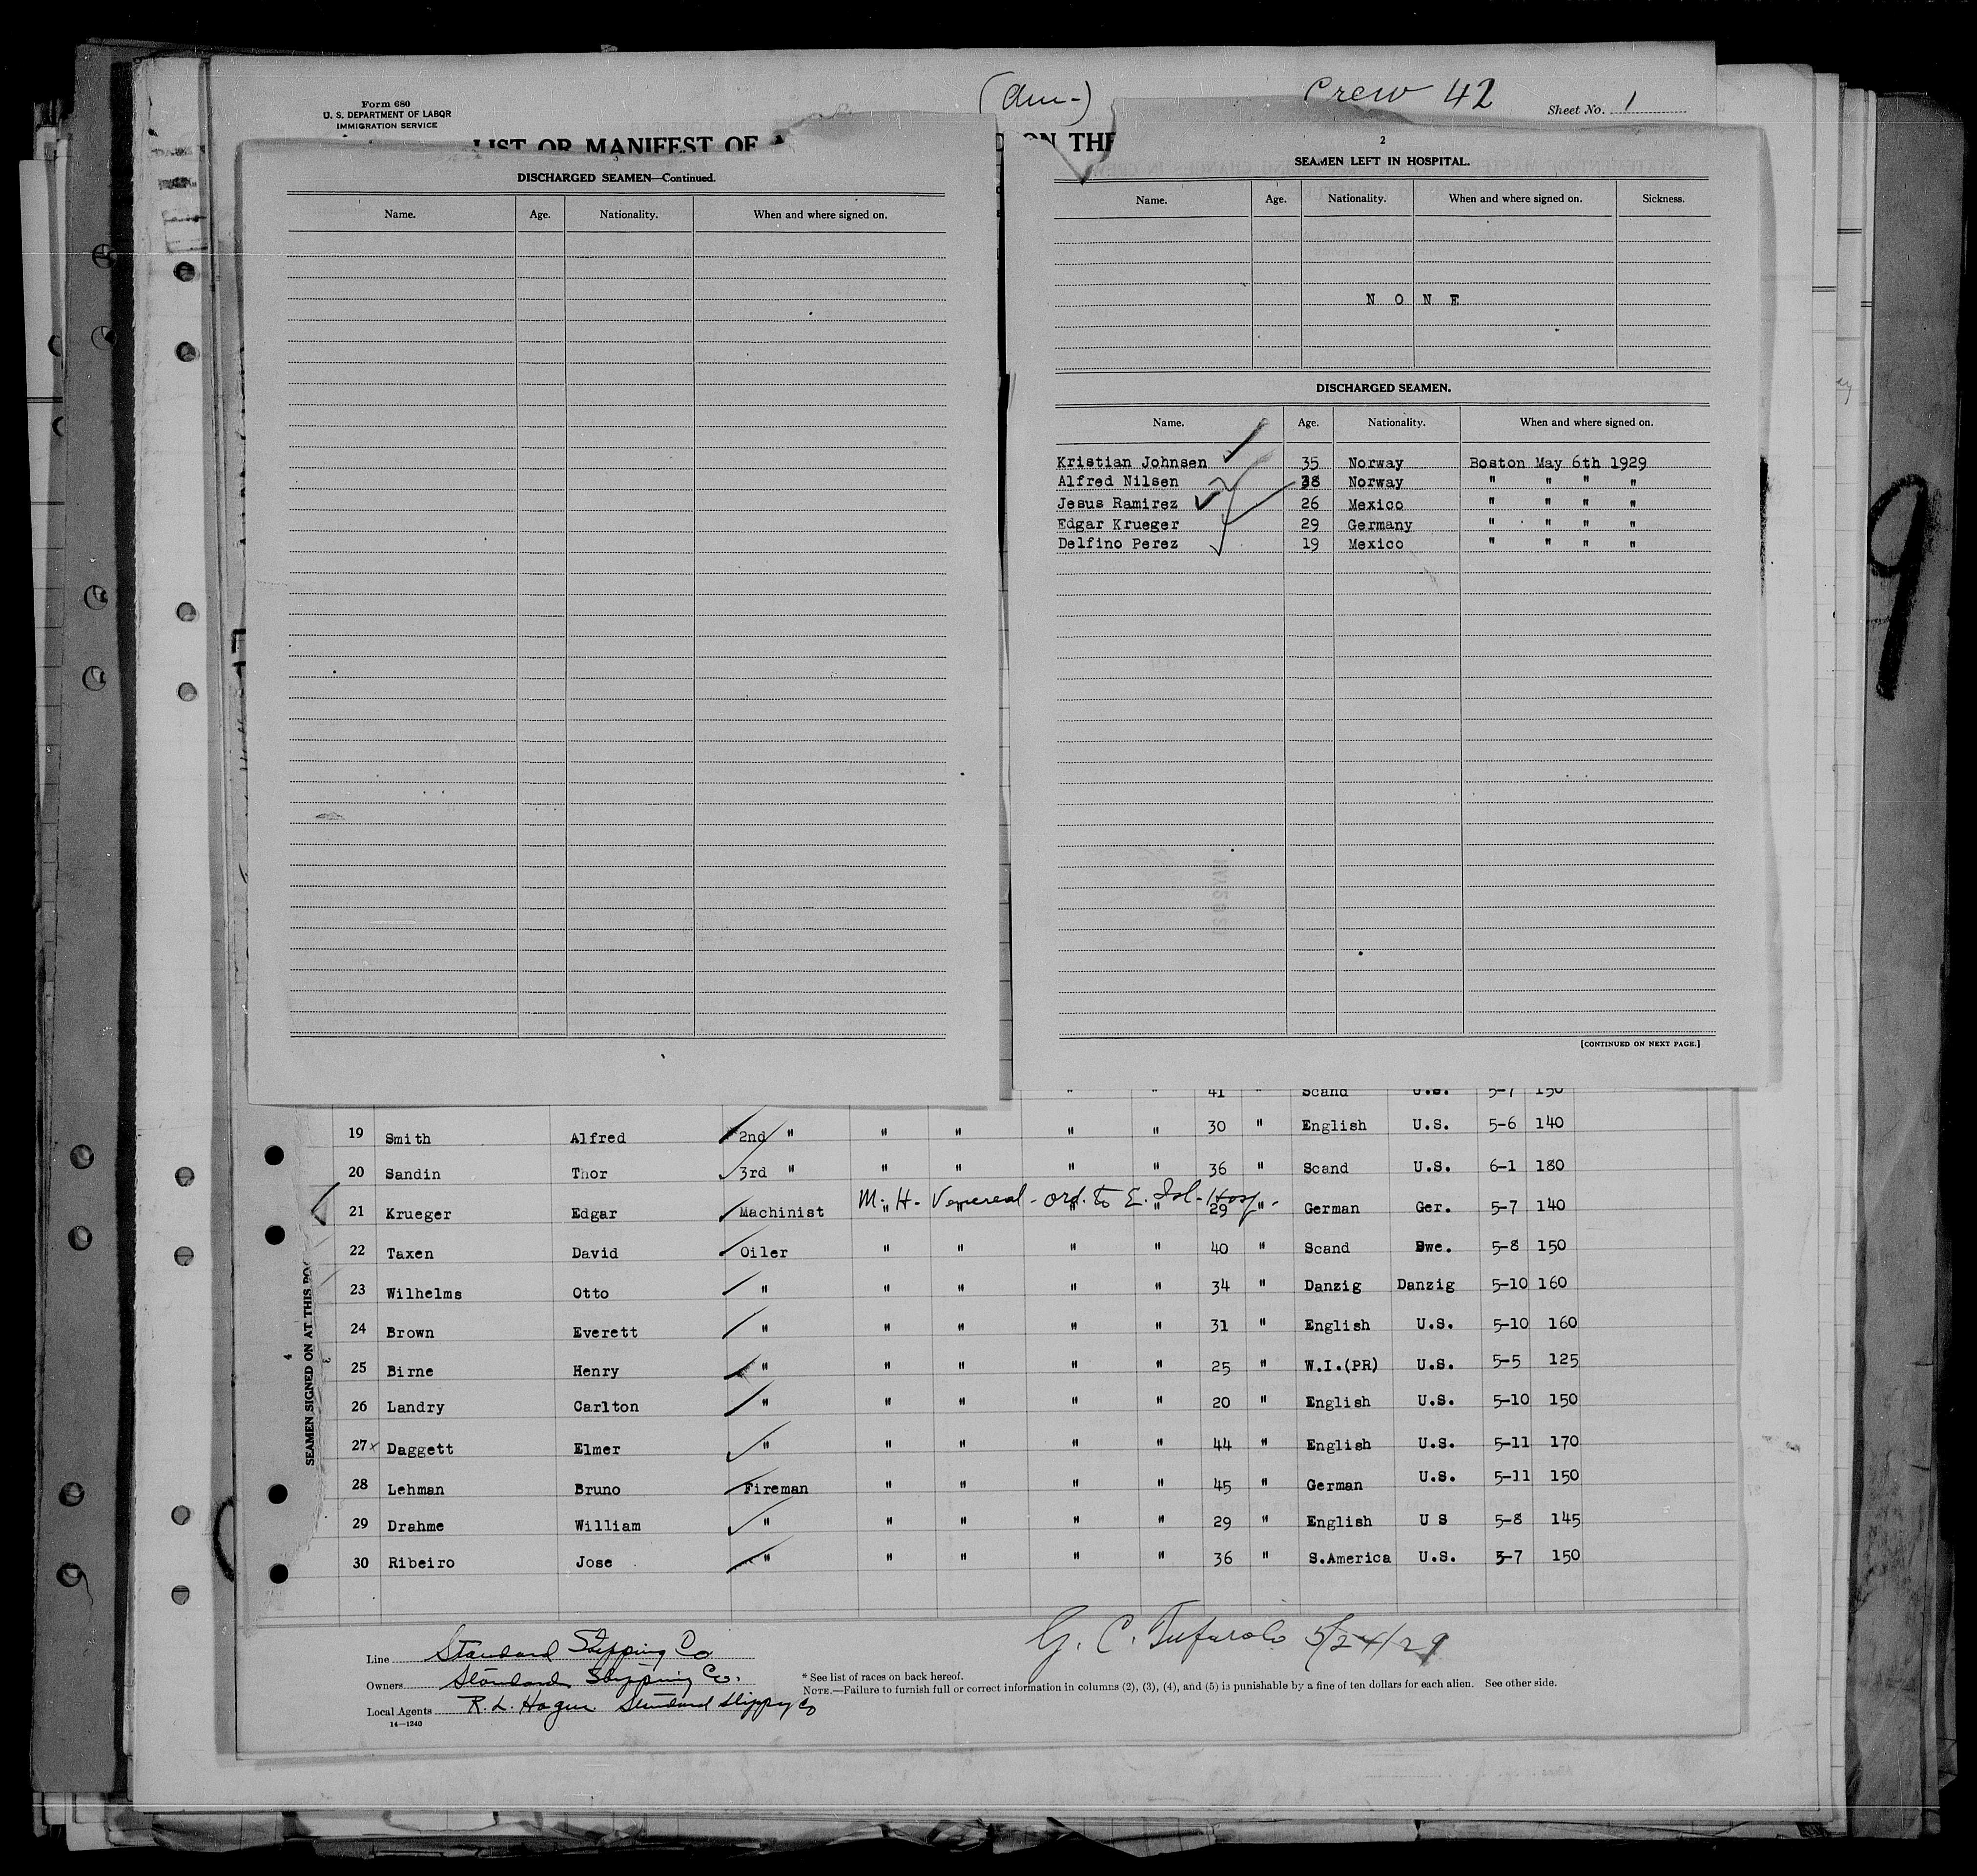 (Am-)
Crew 42
Sheet No. 1
Form 680
U. S. DEPARTMENT OF LABOR
IMMIGRATION SERVICE
LIST OR MANIFEST OF
ON THE
DISCHARGED SEAMEN—Continued.
Name. Age. Nationality. When and where signed on.
2
SEAMEN LEFT IN HOSPITAL.
Name. Age. Nationality. When and where signed on. Sickness.
N O N E
DISCHARGED SEAMEN.
Name. Age. Nationality. When and where signed on.
Kristian Johnsen 35 Norway Boston May 6th 1929
Alfred Nilsen 38 Norway " " " "
Jesus Ramirez 26 Mexico " " " "
Edgar Krueger 29 Germany " " " "
Delfino Perez 19 Mexico " " " "
[CONTINUED ON NEXT PAGE.]
9
" " 41 " Scand U.S. 5-7 150
19 Smith Alfred 2nd " " " " " 30 " English U.S. 5-6 140
20 Sandin Thor 3rd " " " " " 36 " Scand U.S. 6-1 180
M. H. Venereal - ord. to E. Isl. Hosp -
21 Krueger Edgar Machinist " " " " 29 " German Ger. 5-7 140
22 Taxen David Oiler " " " " 40 " Scand Swe. 5-8 150
23 Wilhelms Otto " " " " " 34 " Danzig Danzig 5-10 160
24 Brown Everett " " " " " 31 " English U.S. 5-10 160
25 Birne Henry " " " " " 25 " W.I.(PR) U.S. 5-5 125
26 Landry Carlton " " " " " 20 " English U.S. 5-10 150
27x Daggett Elmer " " " " " 44 " English U.S. 5-11 170
28 Lehman Bruno Fireman " " " " 45 " German U.S. 5-11 150
29 Drahme William " " " " " 29 " English U S 5-8 145
30 Ribeiro Jose " " " " " 36 " S.America U.S. 5-7 150
SEAMEN SIGNED ON AT THIS
4
3
G. C. 5/24/29
Line Standard Shipping Co
Owners Standard Shipping Co.
Local Agents R. L. Hague Standard Shipping Co
14—1240
* See list of races on back hereof.
NOTE.—Failure to furnish full or correct information in columns (2), (3), (4), and (5) is punishable by a fine of ten dollars for each alien. See other side.